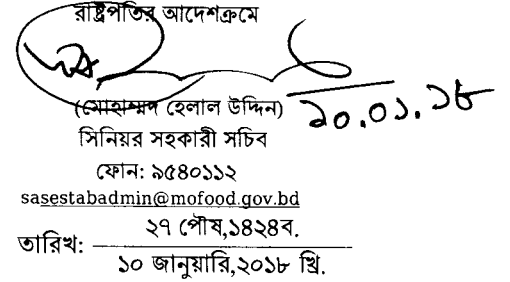 রাষ্ট্রপতির আদেশক্রমে
১০.০১.১৮
(মোহাম্মদ হেলাল উদ্দিন)
সিনিয়র সহকারী সচিব
ফোন: ৯৫৪০১১২
sasestabadmin@mofood.gov.bd
২৭ পৌষ,১৪২৪ব.
তারিখ:
১০ জানুয়ারি,২০১৮ খ্রি.